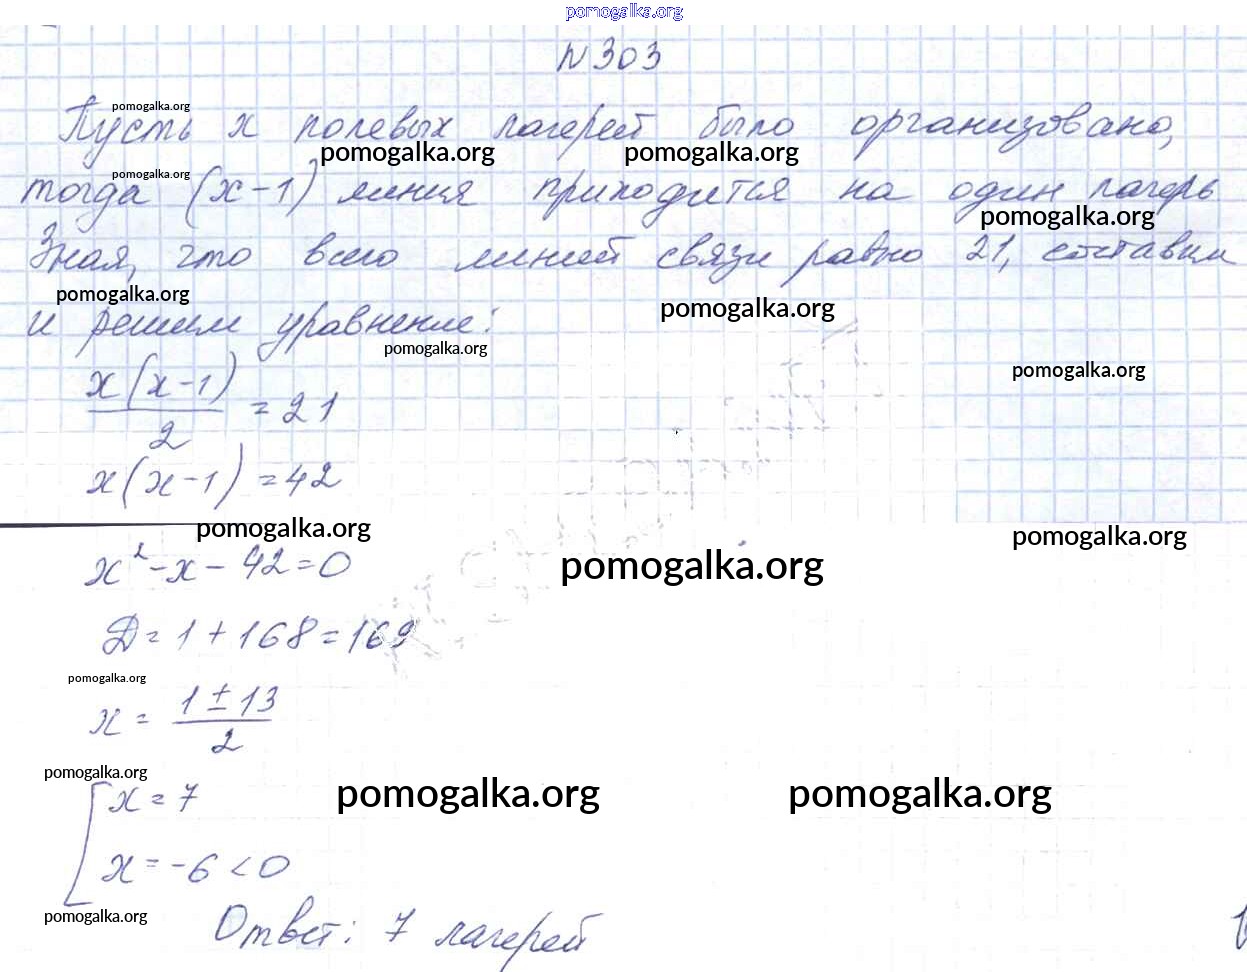 pomogalka.org
N 303
pomogalka.org
Пусть x полевых лагерей было организовано,
pomogalka.org pomogalka.org
pomogalka.org
тогда (x-1) линия приходится на один лагерь
pomogalka.org
Зная, что всего линий связи равно 21, составим
pomogalka.org pomogalka.org
и решим уравнение:
pomogalka.org
pomogalka.org
x(x-1)/2 = 21
x(x-1) = 42
pomogalka.org pomogalka.org
x² - x - 42 = 0
pomogalka.org
D = 1 + 168 = 169
pomogalka.org
x = (1 ± 13)/2
pomogalka.org
[ x = 7
pomogalka.org pomogalka.org
x = -6 < 0
pomogalka.org
Ответ: 7 лагерей